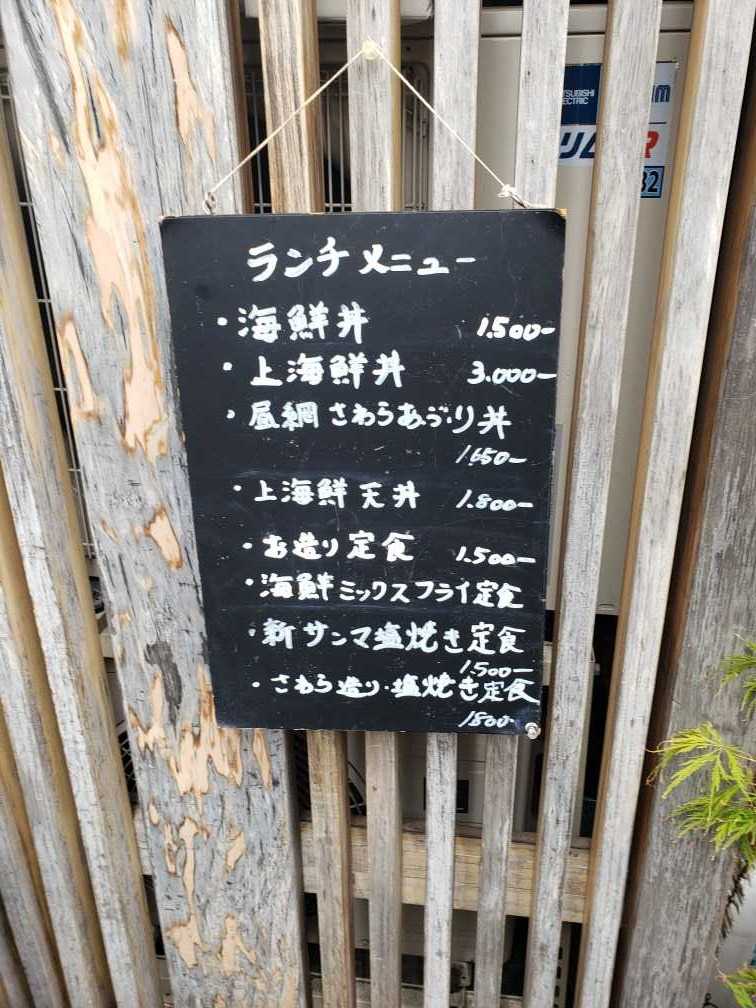 ランチメニュー
・海鮮丼 1.500-
・上海鮮丼 3.000-
・昼網さわらあぶり丼
1.650-
・上海鮮天丼 1.800-
・お造り定食 1.500-
・海鮮ミックスフライ定食
・新サンマ塩焼き定食
1.500-
・さわら造り・塩焼き定食
1800-
MITSUBISHI
ELECTRIC
32